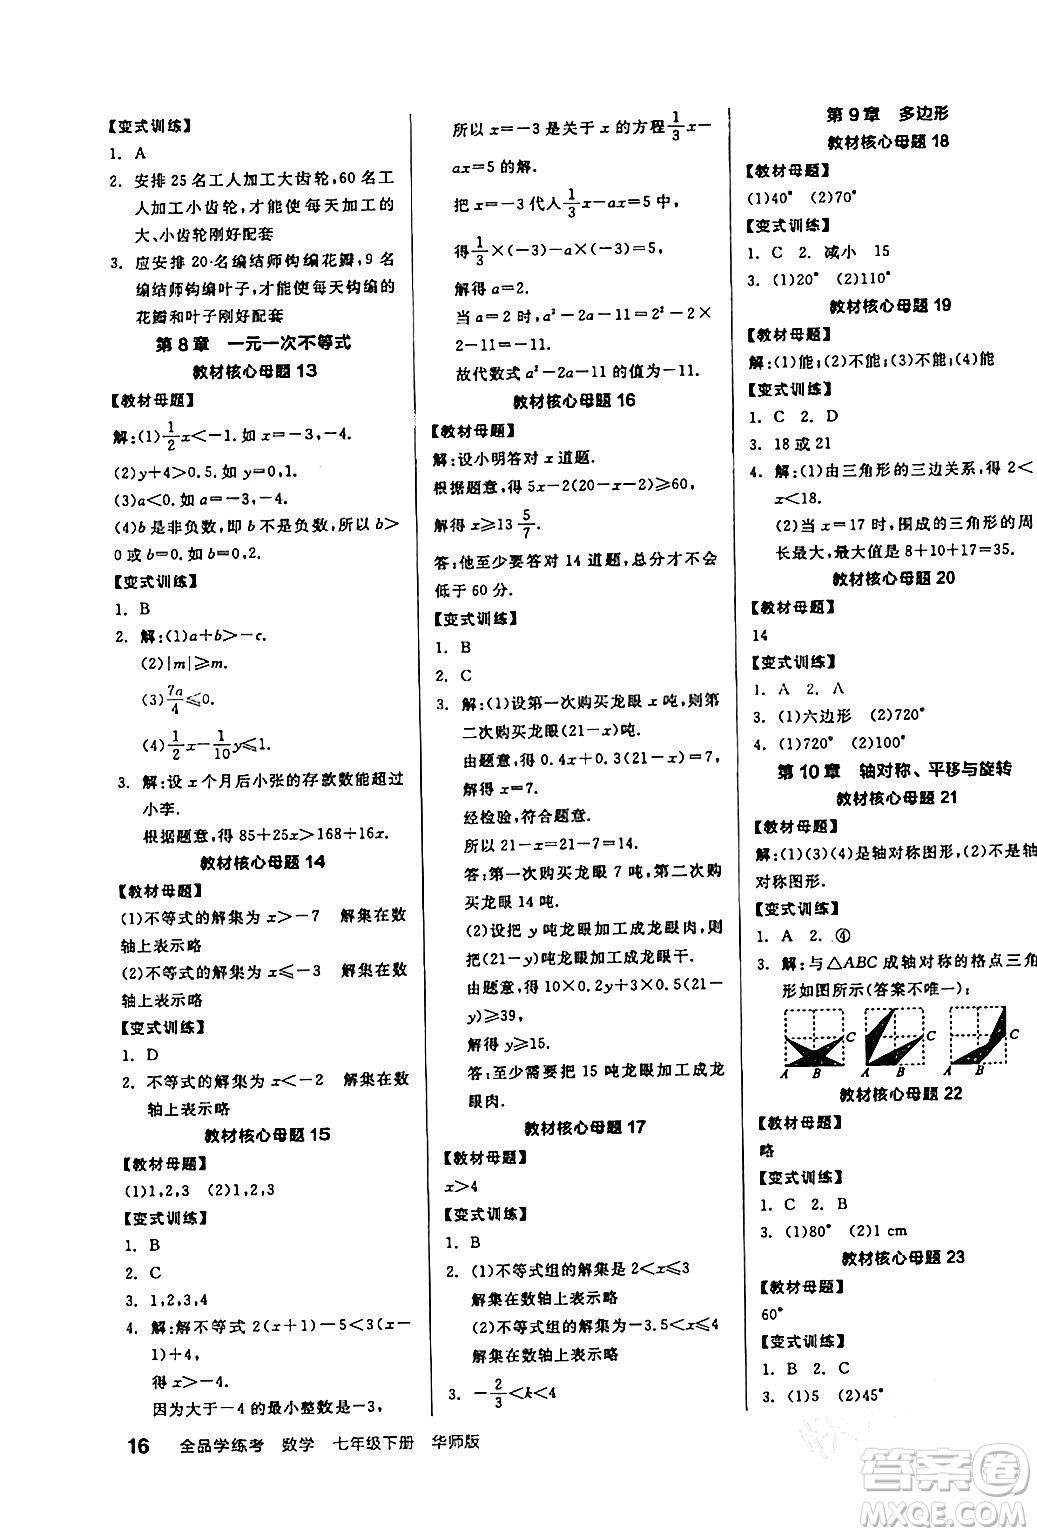 【变式训练】
1. A
2. 安排 25 名工人加工大齿轮,60 名工
人加工小齿轮,才能使每天加工的
大、小齿轮刚好配套
3. 应安排 20·名编结师钩编花瓣,9 名
编结师钩编叶子,才能使每天钩编的
花瓣和叶子刚好配套
第 8 章 一元一次不等式
教材核心母题 13
【教材母题】
解:(1)1/2x<-1.如 x=-3,-4.
(2)y+4>0.5.如 y=0,1.
(3)a<0.如 a=-3,-4.
(4)b 是非负数,即 b 不是负数,所以 b>
0 或 b=0.如 b=0,2.
【变式训练】
1. B
2. 解:(1)a+b>-c.
(2)|m|⩾m.
(3)7a/4⩽0.
(4)1/2x-1/10y⩽1.
3. 解:设 x 个月后小张的存款数能超过
小李.
根据题意,得 85+25x>168+16x.
教材核心母题 14
【教材母题】
(1)不等式的解集为 x>-7 解集在数
轴上表示略
(2)不等式的解集为 x⩽-3 解集在数
轴上表示略
【变式训练】
1. D
2. 不等式的解集为 x<-2 解集在数
轴上表示略
教材核心母题 15
【教材母题】
(1)1,2,3 (2)1,2,3
【变式训练】
1. B
2. C
3. 1,2,3,4
4. 解:解不等式 2(x+1)-5<3(x-
1)+4,
得 x>-4.
因为大于-4 的最小整数是-3,
所以 x=-3 是关于 x 的方程1/3x-
ax=5 的解.
把 x=-3 代人1/3x-ax=5 中,
得1/3×(-3)-a×(-3)=5,
解得 a=2.
当 a=2 时,a²-2a-11=2²-2×
2-11=-11.
故代数式 a²-2a-11 的值为-11.
教材核心母题 16
【教材母题】
解:设小明答对 x 道题.
根据题意,得 5x-2(20-x-2)⩾60,
解得 x⩾13 5/7.
答:他至少要答对 14 道题,总分才不会
低于 60 分.
【变式训练】
1. B
2. C
3. 解:(1)设第一次购买龙眼 x 吨,则第
二次购买龙眼(21-x)吨.
由题意,得 0.4x+0.3(21-x)=7,
解得 x=7.
经检验,符合题意.
所以 21-x=21-7=14.
答:第一次购买龙眼 7 吨,第二次购
买龙眼 14 吨.
(2)设把 y 吨龙眼加工成龙眼肉,则
把(21-y)吨龙眼加工成龙眼干.
由题意,得 10×0.2y+3×0.5(21-
y)⩾39,
解得 y⩾15.
答:至少需要把 15 吨龙眼加工成龙
眼肉.
教材核心母题 17
【教材母题】
x>4
【变式训练】
1. B
2. (1)不等式组的解集是 2<x⩽3
解集在数轴上表示略
(2)不等式组的解集为-3.5<x⩽4
解集在数轴上表示略
3. -2/3<k<4
第 9 章 多边形
教材核心母题 18
【教材母题】
(1)40° (2)70°
【变式训练】
1. C 2. 减小 15
3. (1)20° (2)10°
教材核心母题 19
【教材母题】
解:(1)能;(2)不能;(3)不能;(4)能
【变式训练】
1. C 2. D
3. 18 或 21
4. 解:(1)由三角形的三边关系,得 2<
x<18.
(2)当 x=17 时,围成的三角形的周
长最大,最大值是 8+10+17=35.
教材核心母题 20
【教材母题】
14
【变式训练】
1. A 2. A
3. (1)六边形 (2)720°
4. (1)720° (2)100°
第 10 章 轴对称、平移与旋转
教材核心母题 21
【教材母题】
解:(1)(3)(4)是轴对称图形,(2)不是轴
对称图形.
【变式训练】
1. A 2. ④
3. 解:与△ABC 成轴对称的格点三角
形如图所示(答案不唯一):
C C C
A B A B A B
教材核心母题 22
【教材母题】
略
【变式训练】
1. C 2. B
3. (1)80° (2)1 cm
教材核心母题 23
【教材母题】
60°
【变式训练】
1. B 2. C
3. (1)5 (2)45°
16 全品学练考 数学 七年级下册 华师版
答案圈
MXQE.COM